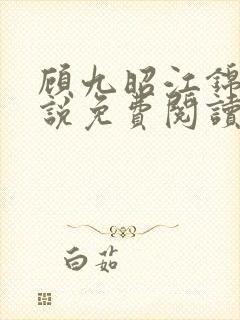 顾九昭江锦
說免費閱讀
白茹